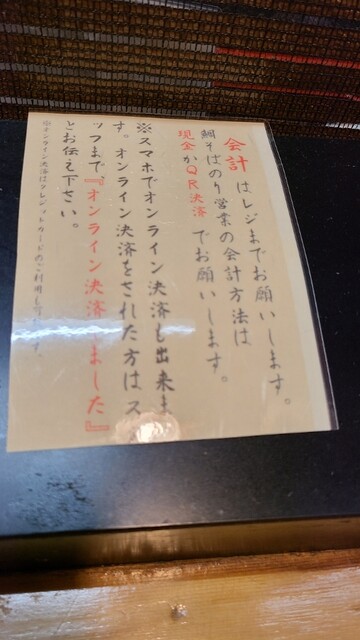 会計はレジまでお願いします。
鯛そばのり営業の会計方法は
現金かQR決済でお願いします。
※スマホでオンライン決済も出来ま
す。オンライン決済をされた方はス
ッフまで、『オンライン決済しました』
とお伝え下さい。
※オンライン決済はクレジットカードのご利用も可能です。